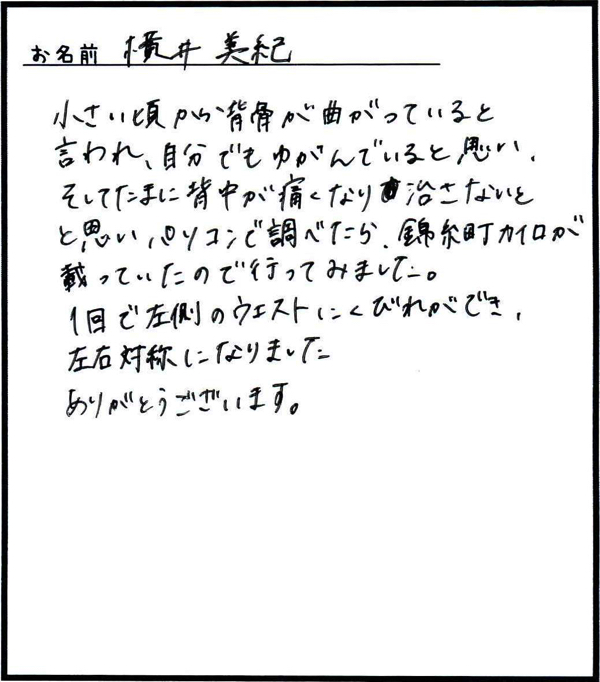 お名前 横井 美紀
小さい頃から背骨が曲がっていると
言われ、自分でもゆがんでいると思い、
そしてたまに背中が痛くなり治さないと
と思い、パソコンで調べたら、錦糸町カイロが
載っていたので行ってみました。
1回で左側のウエストにくびれができ、
左右対称になりました
ありがとうございます。